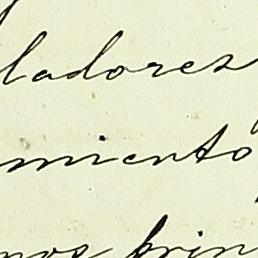 ladores
miento
mos prin